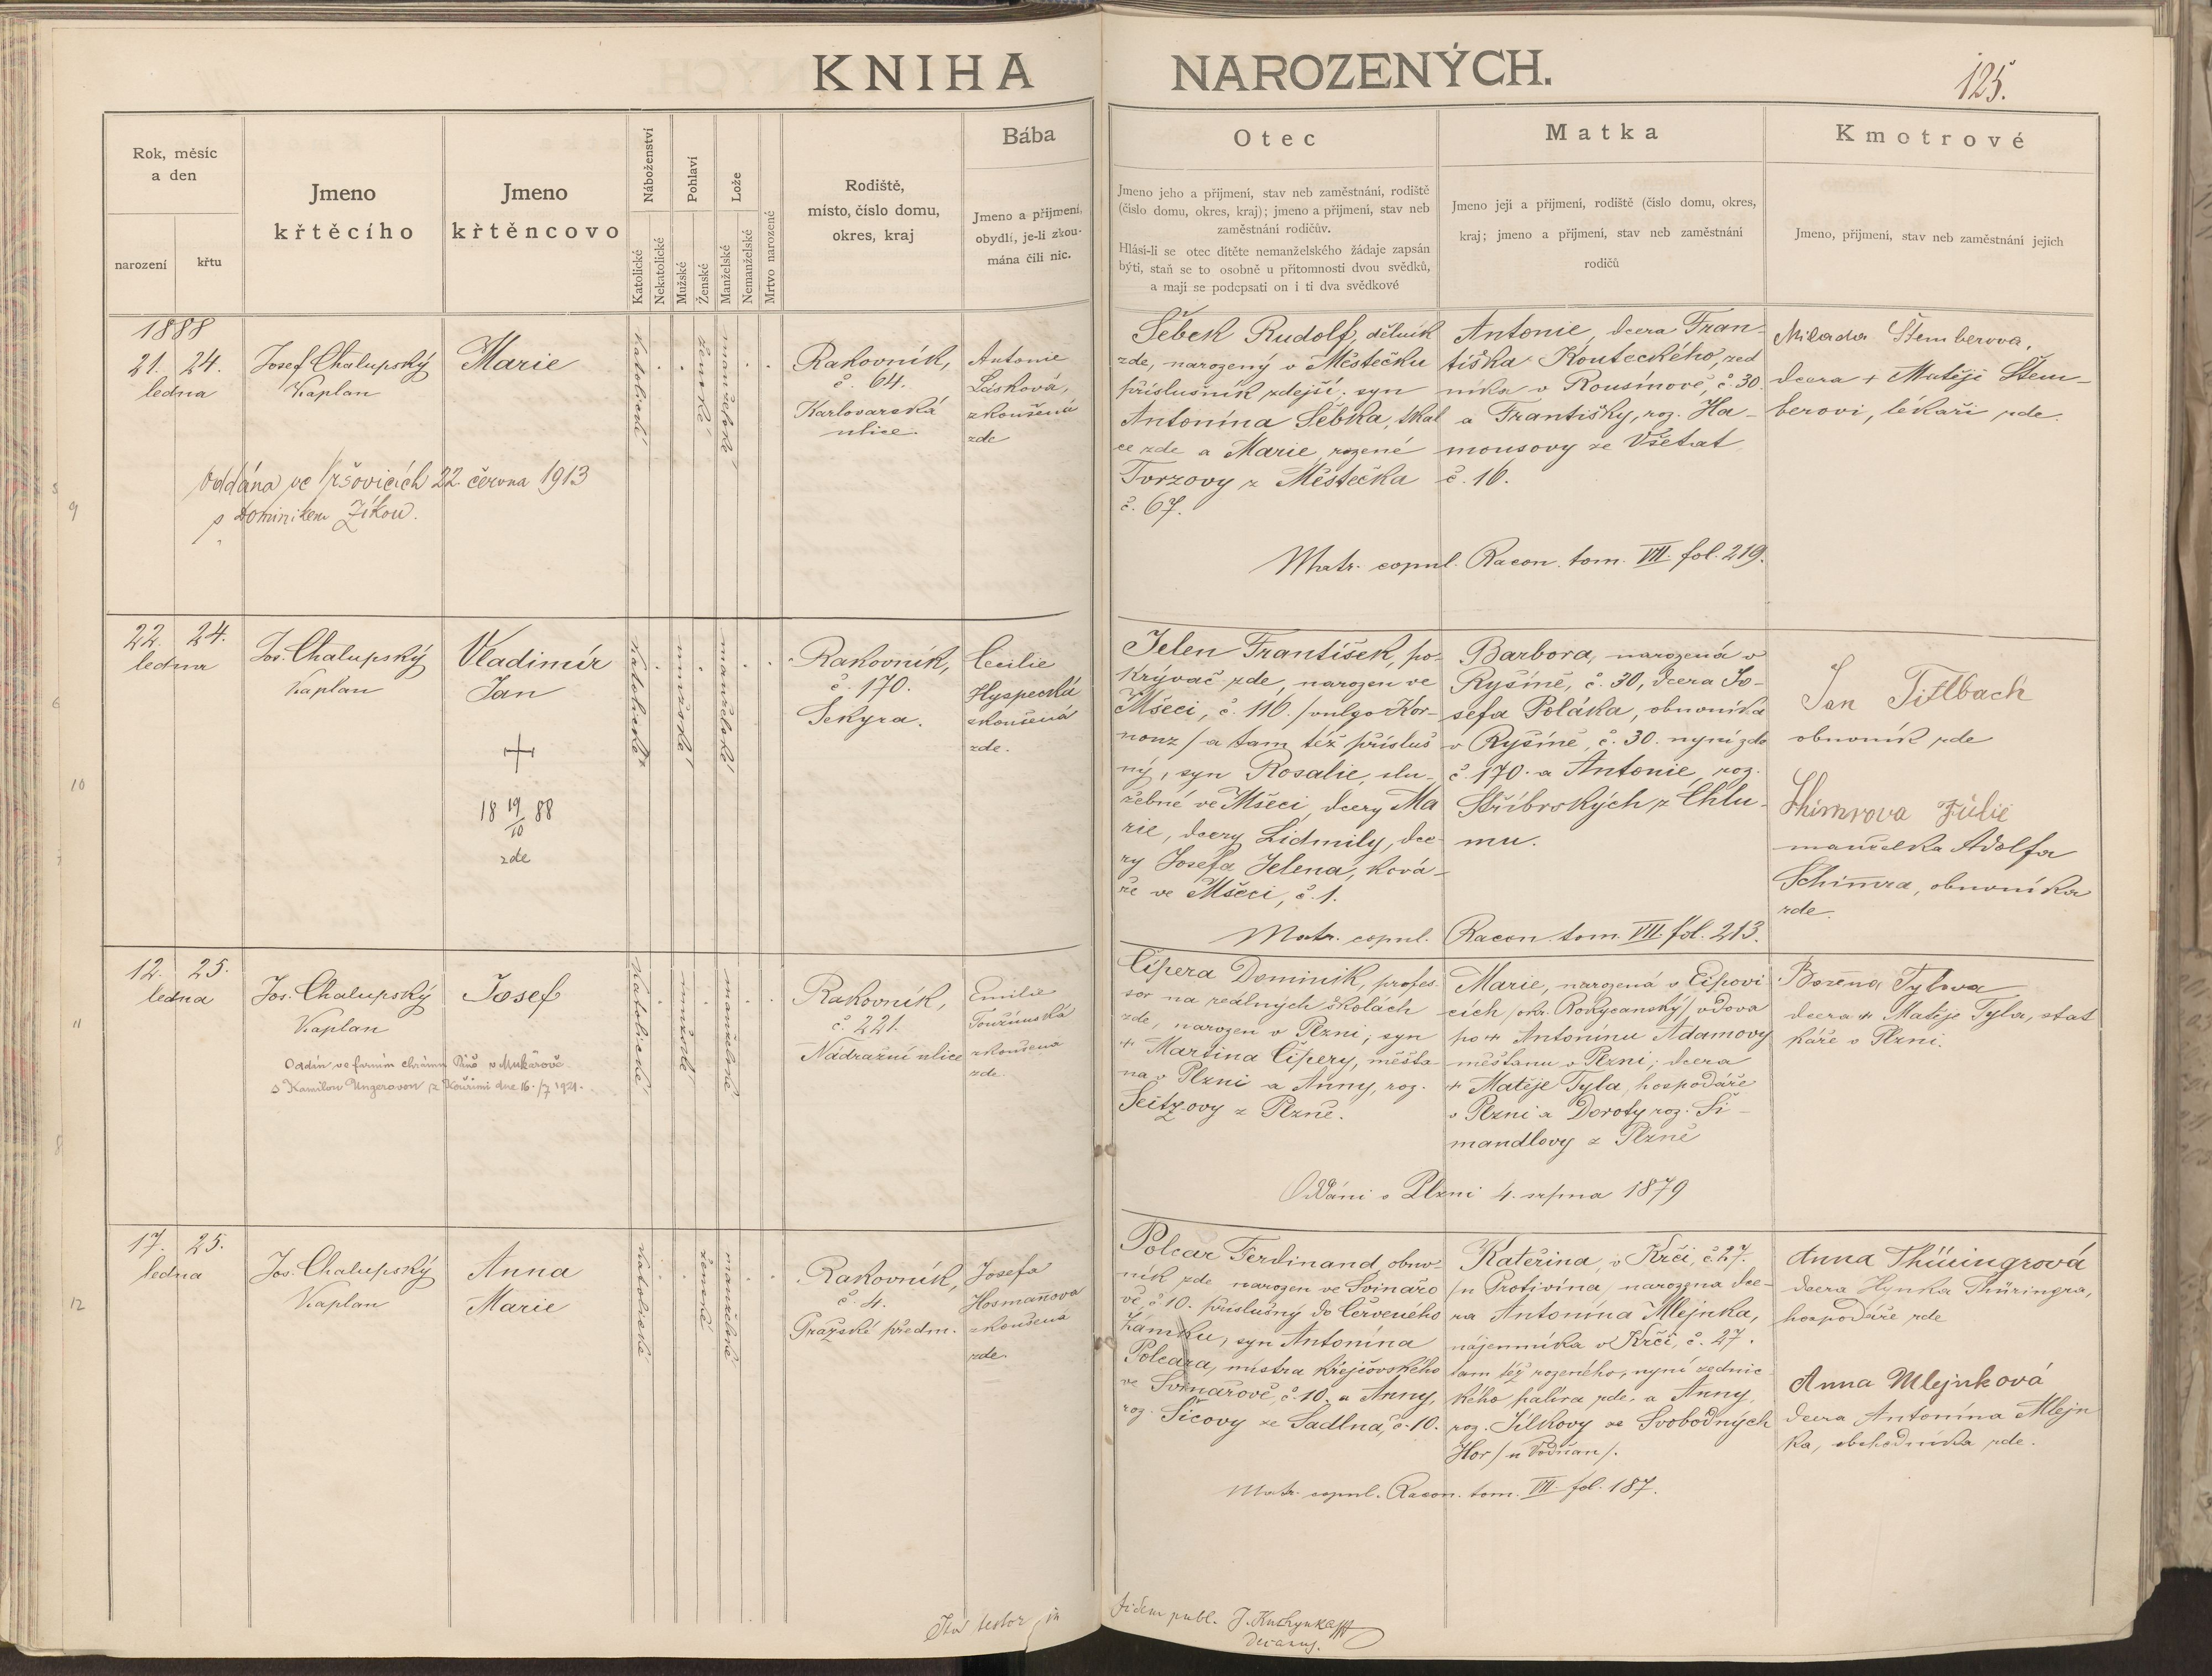 KNIHA NAROZENÝCH.
125.
Rok, měsíc
a den
narození
křtu
Jmeno
křtěcího
Jmeno
křtěncovo
Náboženství
Katolické
Nekatolické
Pohlaví
Mužské
Ženské
Lože
Manželské
Nemanželské
Mrtvo narozené
Rodiště,
místo, číslo domu,
okres, kraj
Bába
Jmeno a příjmení,
obydlí, je-li zkou-
mána čili nic.
Otec
Jmeno jeho a příjmení, stav neb zaměstnání, rodiště
(číslo domu, okres, kraj); jmeno a příjmení, stav neb
zaměstnání rodičův.
Hlásí-li se otec dítěte nemanželského žádaje zapsán
býti, staň se to osobně u přítomnosti dvou svědků,
a mají se podepsati on i ti dva svědkové
Matka
Jmeno její a příjmení, rodiště (číslo domu, okres,
kraj; jmeno a příjmení, stav neb zaměstnání
rodičů
Kmotrové
Jmeno, příjmení, stav neb zaměstnání jejich
9
1888
21. 24.
ledna
Josef Chalupský
Kaplan
Marie
katolické
ženské
manželské
Rakovník,
č. 64.
Karlovarská
ulice.
Antonie
Lásková,
zkoušená
zde
Šebek Rudolf, dělník
zde, narozený v Městečku
příslušník zdejší; syn
Antonína Šebka, tkal
ce zde a Marie, rozené
Torzovy z Městečka
č. 67.
Antonie, dcera Fran-
tiška Kouteckého, zed
níka v Rousínově, č. 30.
a Františky, roz. Ha-
mousovy ze Všetat
č. 16.
Milada Štemberova,
dcera + Matěje Štem-
berovi, lékaři zde.
Oddána ve Vršovicích 22. června 1913
s Dominikem Zíkou.
Matr. copul. Racon. tom. VII. fol. 219.
10
22. 24.
ledna
Jos. Chalupský
Kaplan
Vladimír
Jan
+
18 19/10 88
zde
katolické
mužské
manželské
Rakovník,
č. 170.
Sekyra.
Cecilie
Hyspecká
zkoušená
zde.
Jelen František, po-
krývač zde, narozen ve
Mšeci, č. 116. /vulgo Kor-
nouz/ a tam též přísluš
ný, syn Rosalie, slu-
žebné ve Mšeci, dcery Ma
rie, dcery Lidmily, dce-
ry Josefa Jelena, ková-
ře ve Mšeci, č. 1.
Barbora, narozená v
Ryšíně, č. 30, dcera Jo-
sefa Poláka, obuvníka
v Ryšíně, č. 30. nyní zde
č. 170. a Antonie, roz.
Stříbrských z Chlu-
mu.
Jan Tittlbach
obuvník zde
Shimrova Julie
manželka Adolfa
Schimra, obuvníka
zde.
Matr. copul. Racon. tom. VII. fol. 213.
11
12. 25.
ledna
Jos. Chalupský
Kaplan
Josef
katolické
mužské
manželské
Rakovník,
č. 221.
Nádražní ulice
Emilie
Toužimská
zkoušena
zde.
Oddán ve farním chrámu Páně v Mukařově
s Kamilou Ungerovou z Kouřimi dne 16./7 1921.
Čipera Dominik, profes-
sor na reálných školách
zde, narozen v Plzni; syn
+ Martina Čipery, měšťa-
na v Plzni a Anny, roz.
Seitzovy z Plzně.
Marie, narozená v Eipovi
cích /okr. Rokycanský/ vdova
po + Antonínu Adamovy
měšťanu v Plzni; dcera
+ Matěje Tyla, hospodáře
v Plzni a Doroty roz. Ši-
mandlovy z Plzně
Božena Tylova
dcera + Matěje Tyla, stat
káře v Plzni.
Oddáni v Plzni 4. srpna 1879
12
17. 25.
ledna
Jos. Chalupský
Kaplan
Anna
Marie
katolické
ženské
manželské
Rakovník,
č. 4.
Pražské předm.
Josefa
Hosmanova
zkoušená
zde.
Polcar Ferdinand, obuv-
ník zde narozen ve Svinařo
vě, č. 10. příslušný do Červeného
Zámku, syn Antonína
Polcara, mistra krejčovského
ve Svinařově, č. 10. a Anny,
roz. Šicovy ze Sadlna, č. 10.
Kateřina, v Krči, č. 27.
/u Protivína, narozena dce-
ra Antonína Mlejnka,
nájemníka v Krči, č. 27.
tam též rozeného, nyní zednic
kého palíra zde, a Anny,
roz. Jílkovy ze Svobodných
Hor /u Vodňan/.
Anna Thüringrová
dcera Hynka Thüringra,
hospodáře zde
Anna Mlejnková
dcera Antonína Mlejn
ka, obchodníka zde.
Matr. copul. Racon. tom. VII. fol. 187.
Ita testor in fidem publ. J. Kuchynka
decanus.